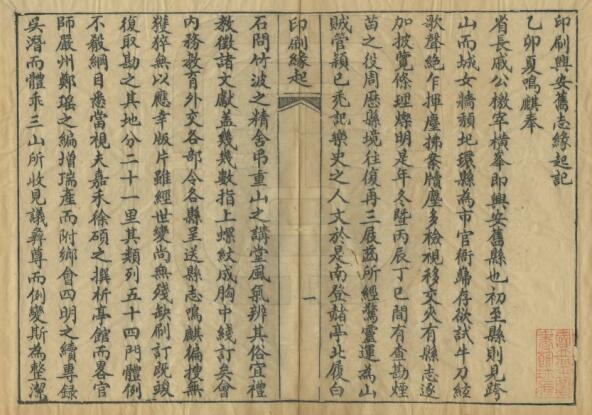 印刷興安舊志緣起記
乙卯夏鳴麒奉
省長戚公檄宰橫峯即興安舊縣也初至縣則見跨
山而城女牆頹圮環縣為市官衙巋存欲試牛刀絃
歌聲絶乍揮麈拂案牘塵多檢視移交夾有縣志遂
加披覽條理燦明是年冬暨丙辰丁巳間有查勘煙
苗之役周歷縣境往復再三屐齒所經驚靈運為山
賊管穎已禿記樂史之人文於是南登鵞亭北履白
印刷緣起
一
石問竹波之精舍弔重山之講堂風氣辨其俗宜禮
教徵諸文獻蓋幾幾數指上螺紋成胸中綫訂矣會
内務教育外交各部令各縣呈送縣志鳴麒徧搜無
獲猝無以應幸版片雖經世變尚無殘缺刷訂既竣
復取勘之其地分二十一里其類列五十四門體例
不殽綱目悉當視夫嘉禾徐碩之撰析亭館而畧官
師嚴州鄭瑤之編增瑞產而附鄉會四明之續專録
吳潛而體乖三山所收見議彛尊而例變斯為整潔